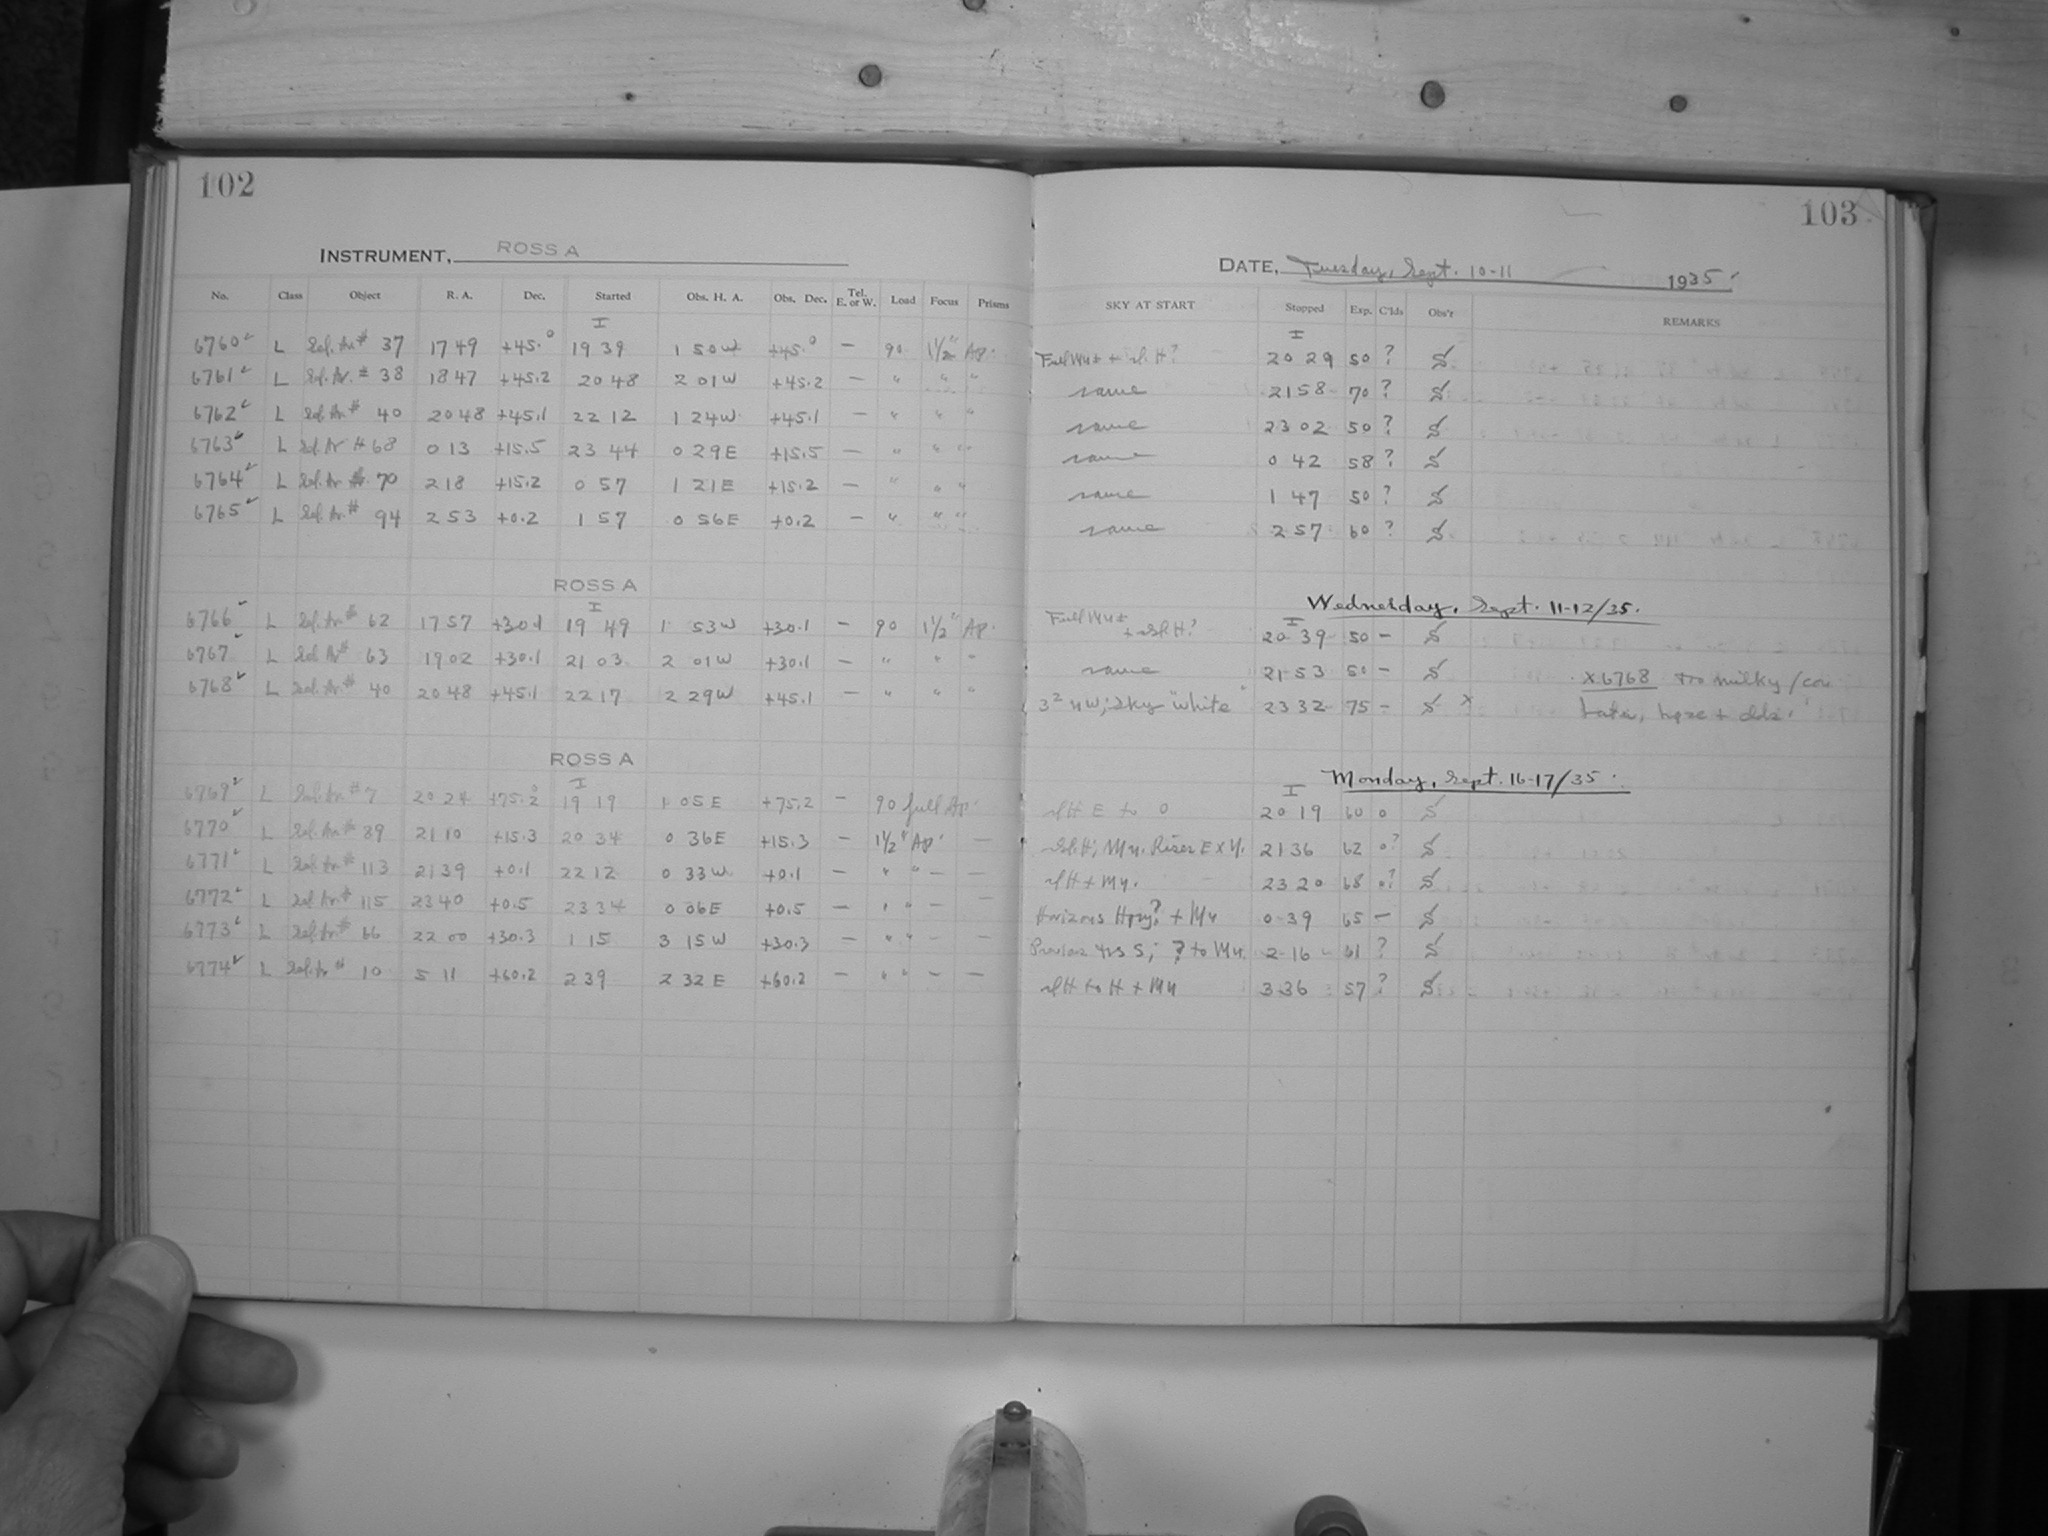 102
103
INSTRUMENT, ROSS A
DATE, Tuesday, Sept. 10-11 1935
No. Class Object R. A. Dec. Started Obs. H. A. Obs. Dec. Tel. E. or W. Load Focus Prisms SKY AT START Stopped Exp. C'lds Obs'r REMARKS
I I
6760 L Sel. Ar # 37 17 49 +45.0 19 39 1 50W +45.0 — 90 1½" Ap. Full Mn + sl. H? 20 29 50 ? S
6761 L Sel. Ar. # 38 18 47 +45.2 20 48 2 01W +45.2 — " " " same 21 58 70 ? S
6762 L Sel Ar. # 40 20 48 +45.1 22 12 1 24W +45.1 — " " " same 23 02 50 ? S
6763 L Sel. Ar # 68 0 13 +15.5 23 44 0 29E +15.5 — " " " same 0 42 58 ? S
6764 L Sel. Ar #. 70 2 18 +15.2 0 57 1 21E +15.2 — " " " same 1 47 50 ? S
6765 L Sel. Ar. # 94 2 53 +0.2 1 57 0 56E +0.2 — " " " same 2 57 60 ? S
ROSS A
Wednesday, Sept. 11-12/35.
I I
6766 L Sel. Ar # 62 17 57 +30.1 19 49 1 53W +30.1 — 90 1½" Ap. Full Mn + sl H? 20 39 50 — S
6767 L Sel Ar # 63 19 02 +30.1 21 03 2 01W +30.1 — " " " same 21 53 50 — S x 6768 too milky/
6768 L Sel. Ar. # 40 20 48 +45.1 22 17 2 29W +45.1 — " " " sky "white" 23 32 75 — S x
ROSS A
Monday, Sept. 16-17/35.
I I
6769 L Sel. Ar # 7 20 24 +75.2 19 19 1 05E +75.2 — 90 full Ap. sl H E to 0 20 19 60 0 S
6770 L Sel. Ar. # 89 21 10 +15.3 20 34 0 36E +15.3 — 1½" Ap. — sl. H; Mn. Rises E x N. 21 36 62 0? S
6771 L Sel. Ar # 113 21 39 +0.1 22 12 0 33W +0.1 — " " — — sl H + Mn. 23 20 68 0? S
6772 L Sel Ar. # 115 23 40 +0.5 23 34 0 06E +0.5 — " " — — Horizons Hazy? + Mn 0 39 65 — S
6773 L Sel. Ar # 66 22 00 +30.3 1 15 3 15W +30.3 — " " — — S; ? to Mn. 2 16 61 ? S
6774 L Sel. Ar # 10 5 11 +60.2 2 39 2 32E +60.2 — " " — — sl H to H + Mn 3 36 57 ? S